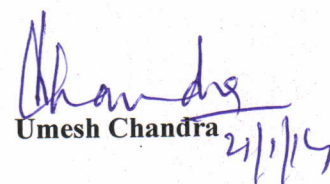 Chandra
Umesh Chandra
21/1/14